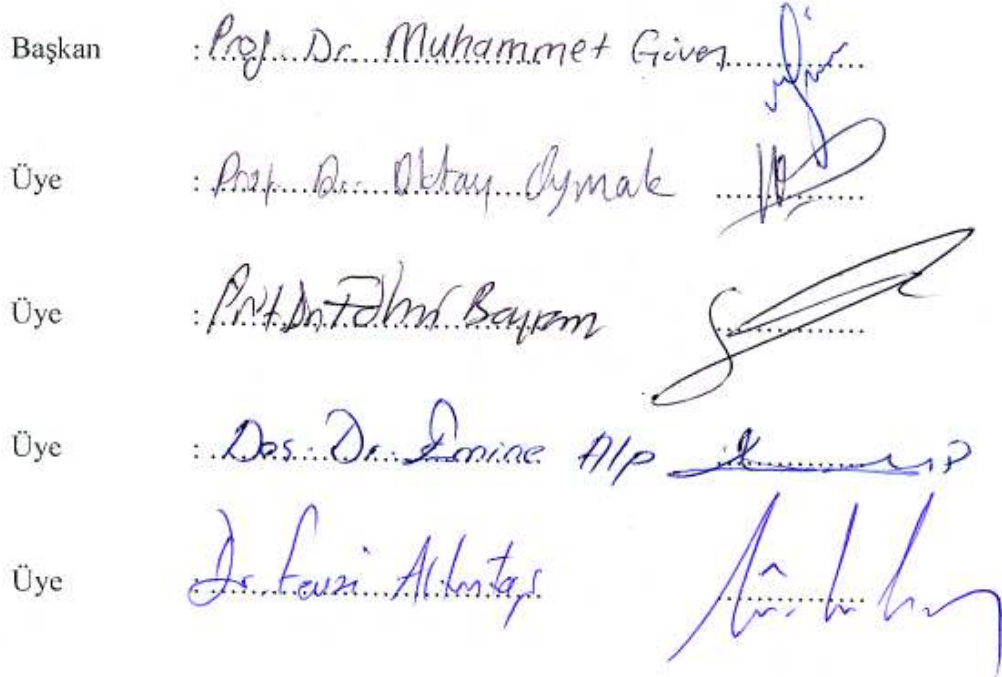 Başkan : Prof. Dr. Muhammet Güven
Üye : Prof. Dr. Oktay Oymak
Üye : Prof. Dr. Fahri Bayram
Üye : Doç. Dr. Emine Alp
Üye : Dr. Fevzi Altuntaş